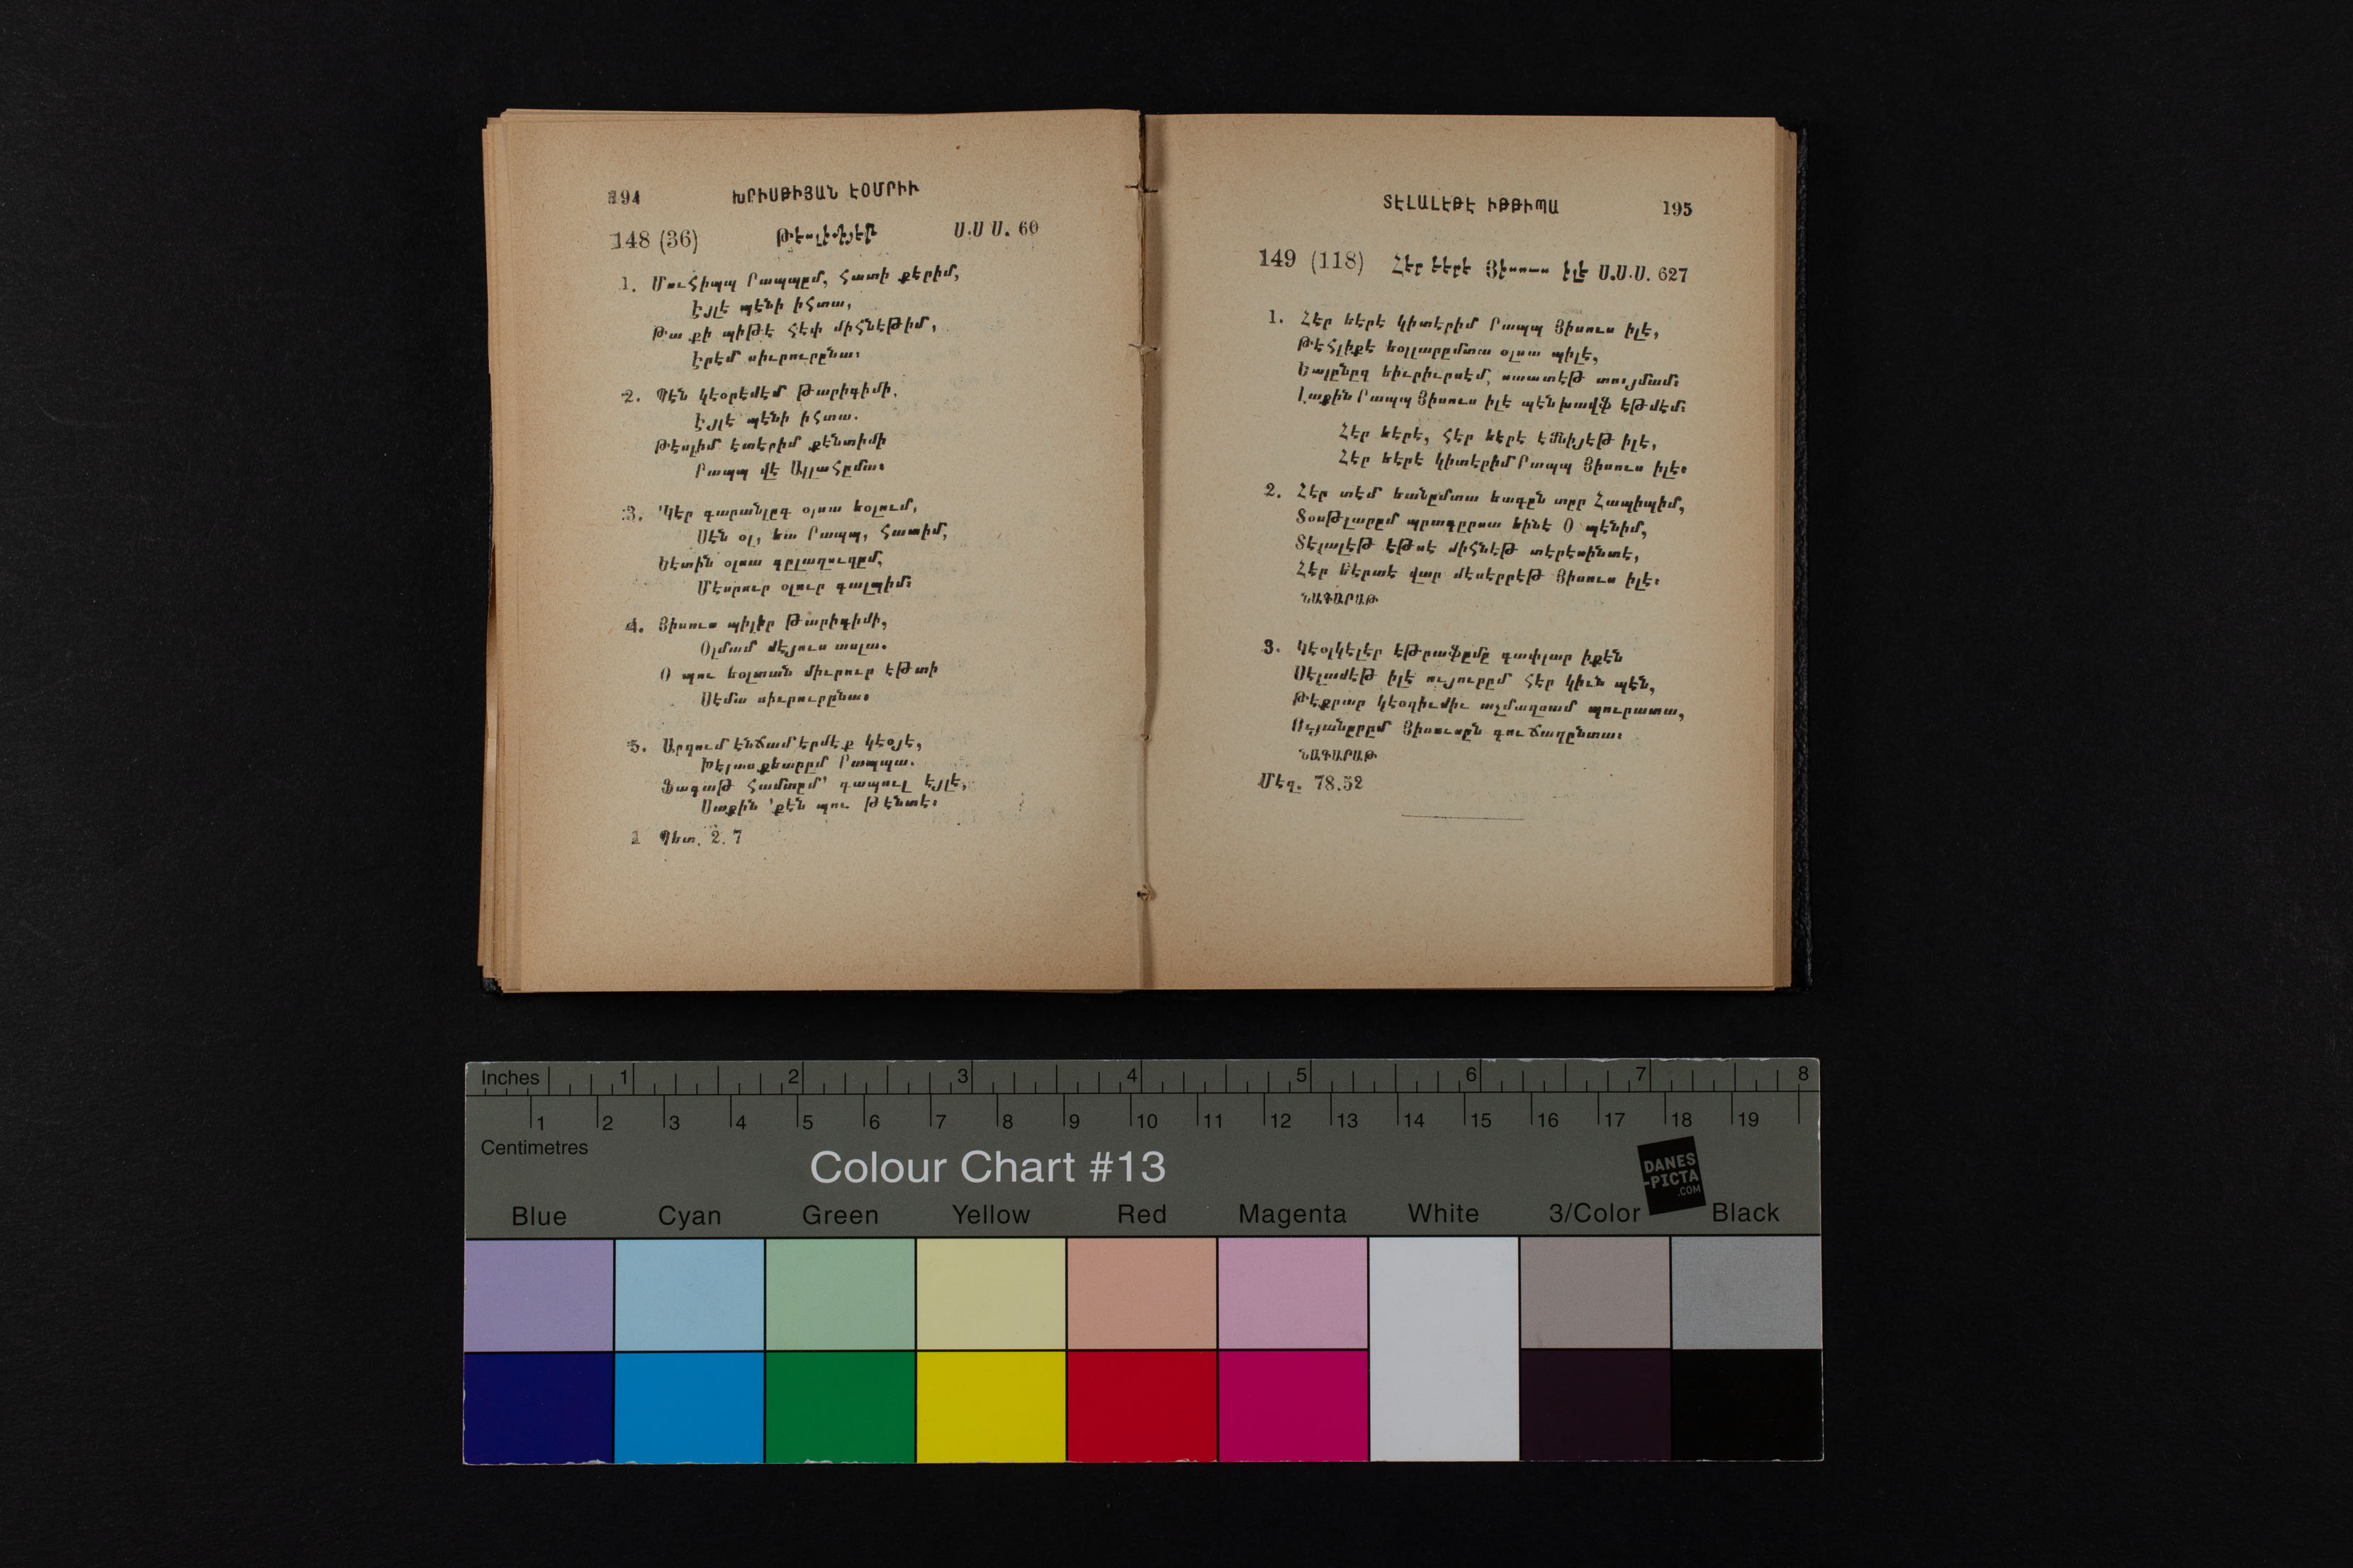 194 ԽՐԻՍԹԻՅԱՆ ԷՕՄՐԻՒ
148 (36) Թէսլիմիյէթ Ս.Ս Ս. 60
1. Մուհիպպ Րապպըմ, Հատի քերիմ,
Էյլէ պէնի իհտա,
Թա քի պիթէ հէփ միհնէթիմ,
Էրէմ սիւրուրընա։
2. Պէն կէօրէմէմ Թարիգիմի,
Էյլէ պէնի իհտա.
Թէսլիմ էտէրիմ քէնտիմի
Րապպ վէ Ալլահըմա։
3. Կէր գարանլըգ օլսա եօլում,
Սէն օլ, եա Րապպ, Հատիմ,
Եէտին օլսա գըլաղուզըմ,
Մէսրուր օլուր գալպիմ։
4. Յիսուս պիլիր Թարիգիմի,
Օլմամ մէյուս ասլա.
Օ պու եօլտան միւրուր էթտի
Սէմա սիւրուրընա։
5. Արզում էնճամ էրմէք կէօյէ,
Խէլասքեարըմ Րապպա.
Ֆագաթ Համտըմ՝ գապուլ էյլէ,
Սաքին ՚քէն պու թէնտէ։
1 Պետ. 2. 7
ՏԷԼԱԼԷԹԷ ԻԹԹԻՊԱ 195
149 (118) Հէր եէրէ Յիսուս իլէ Ս.Ս.Ս. 627
1. Հէր եէրէ կիտէրիմ Րապպ Յիսուս իլէ,
Թէհլիքէ եօլլարըմտա օլսա պիլէ,
Եալընըզ եիւրիւրսէմ, սաատէթ տույմամ։
Լաքին Րապպ Յիսուս իլէ պէն խավֆ էթմէմ։
Հէր եէրէ, հէր եէրէ էմնիյէթ իլէ,
Հէր եէրէ կիտէրիմ Րապպ Յիսուս իլէ։
2. Հէր տէմ եանըմտա եագըն տըր Հապիպիմ,
Տօսթլարըմ պրագըրսա եինէ Օ պէնիմ,
Տէլալէթ էթսէ միհնէթ տէրէսինտէ,
Հէր եէրտէ վար մէսէրրէթ Յիսուս իլէ։
ՆԱԳԱՐԱԹ
3. Կէօլկէլէր էթրաֆըմը գափլար իքէն
Սէլամէթ իլէ ույուրըմ հէր կիւն պէն,
Թէքրար կէօզիւմիւ աչմազսամ պուրատա,
Ույանըրըմ Յիսուսըն գուճաղընտա։
ՆԱԳԱՐԱԹ
Մէզ. 78.52
Inches 1 2 3 4 5 6 7 8
1 2 3 4 5 6 7 8 9 10 11 12 13 14 15 16 17 18 19
Centimetres
Colour Chart #13
DANES
-PICTA
.COM
Blue Cyan Green Yellow Red Magenta White 3/Color Black